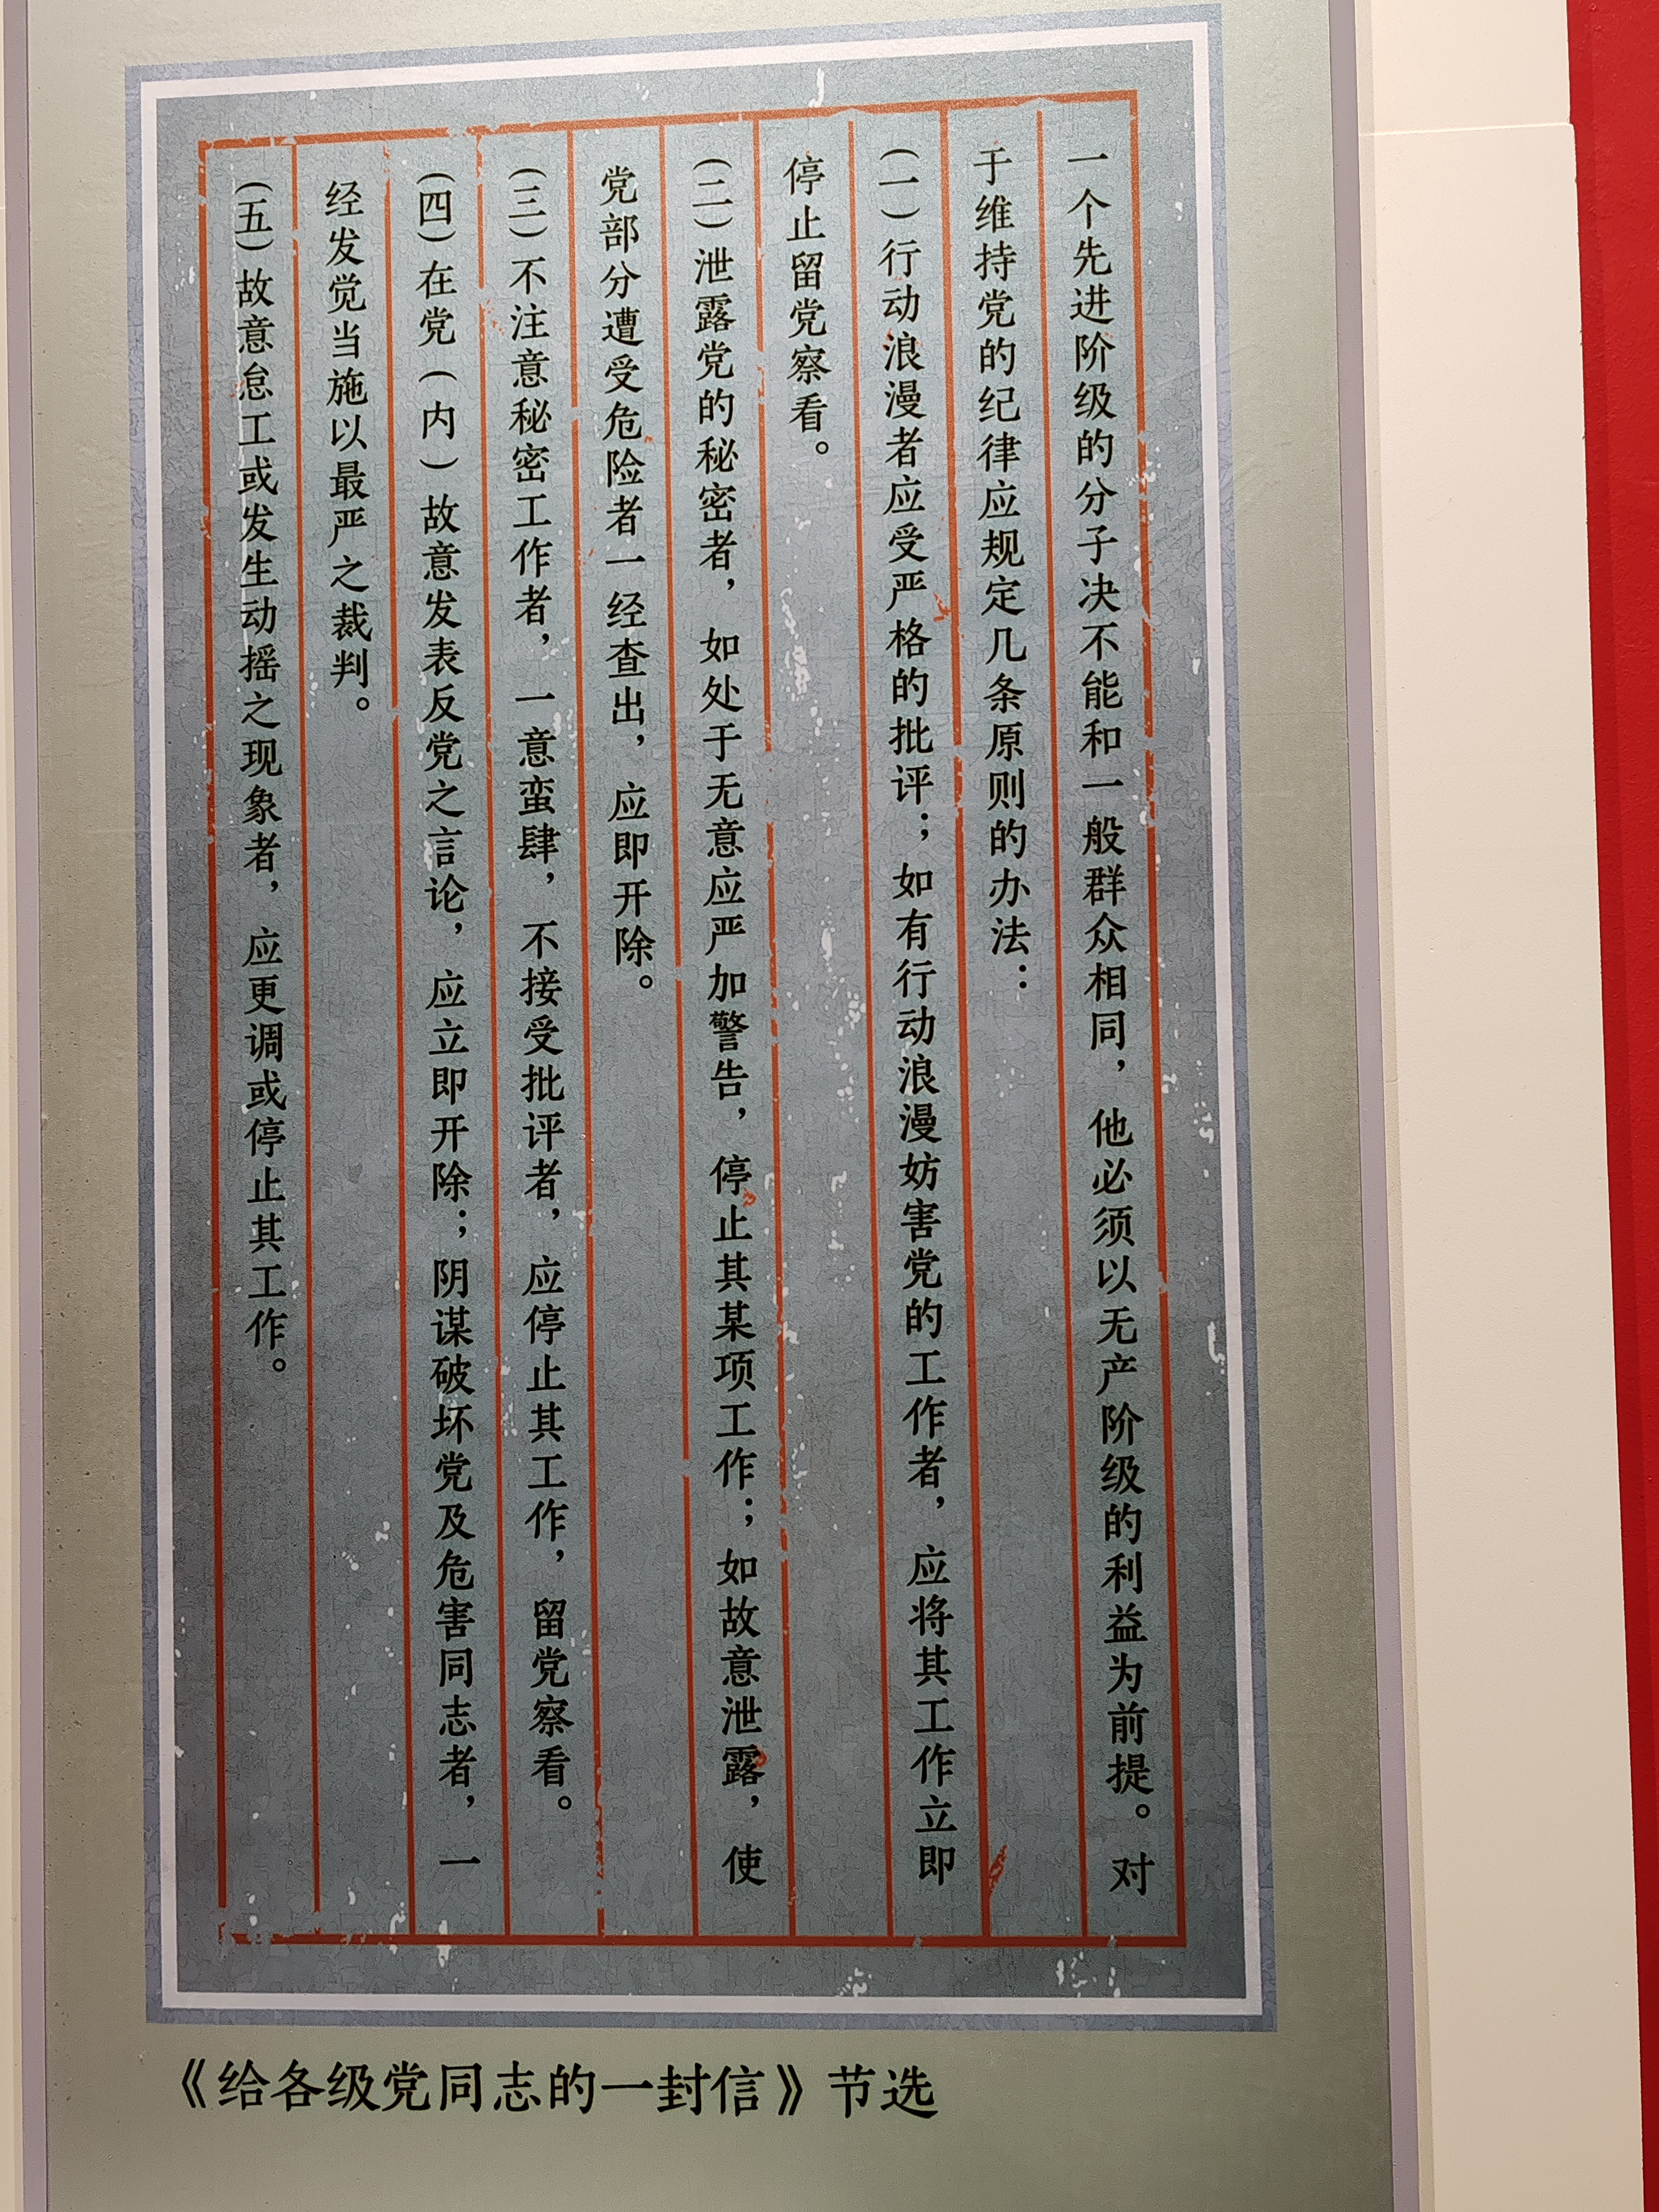 一个先进阶级的分子决不能和一般群众相同，他必须以无产阶级的利益为前提。对
于维持党的纪律应规定几条原则的办法：
（一）行动浪漫者应受严格的批评；如有行动浪漫妨害党的工作者，应将其工作立即
停止留党察看。
（二）泄露党的秘密者，如处于无意应严加警告，停止其某项工作；如故意泄露，使
党部分遭受危险者一经查出，应即开除。
（三）不注意秘密工作者，一意蛮肆，不接受批评者，应停止其工作，留党察看。
（四）在党（内）故意发表反党之言论，应立即开除；阴谋破坏党及危害同志者，一
经发觉当施以最严之裁判。
（五）故意怠工或发生动摇之现象者，应更调或停止其工作。
《给各级党同志的一封信》节选